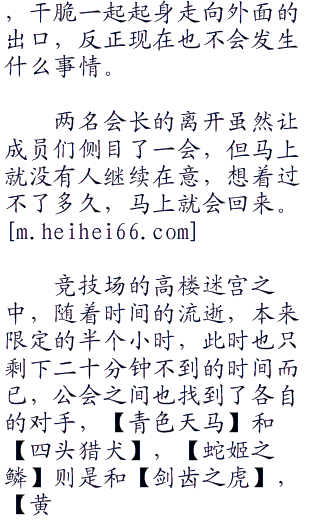 ，干脆一起起身走向外面的
出口，反正现在也不会发生
什么事情。
两名会长的离开虽然让
成员们侧目了一会，但马上
就没有人继续在意，想着过
不了多久，马上就会回来。
[m.heihei66.com]
竞技场的高楼迷宫之
中，随着时间的流逝，本来
限定的半个小时，此时也只
剩下二十分钟不到的时间而
已，公会之间也找到了各自
的对手，【青色天马】和
【四头猎犬】，【蛇姬之
鳞】则是和【剑齿之虎】，
【黄